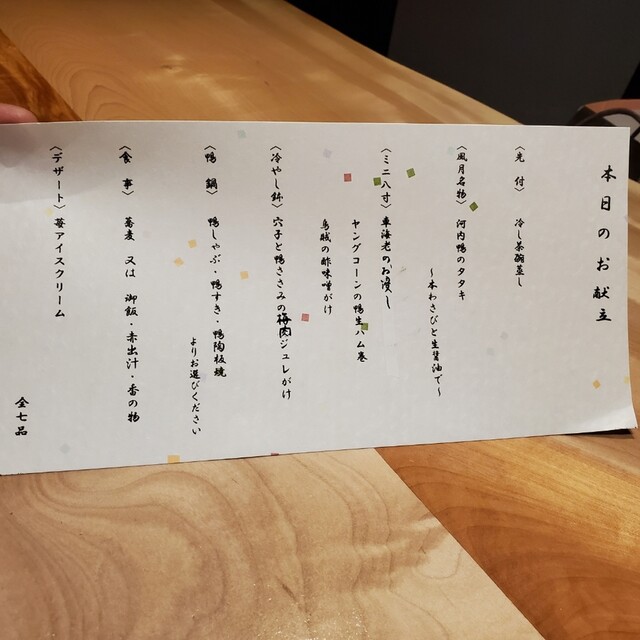 本日のお献立
〈先付〉 冷し茶碗蒸し
〈風月名物〉 河内鴨のタタキ
～本わさびと生醤油で～
〈ミニ八寸〉 車海老のお浸し
ヤングコーンの鴨生ハム巻
烏賊の酢味噌がけ
〈冷やし鉢〉 穴子と鴨ささみの梅肉ジュレがけ
〈鴨鍋〉 鴨しゃぶ・鴨すき・鴨陶板焼
よりお選びください
〈食事〉 蕎麦 又は 御飯・赤出汁・香の物
〈デザート〉 苺アイスクリーム
全七品